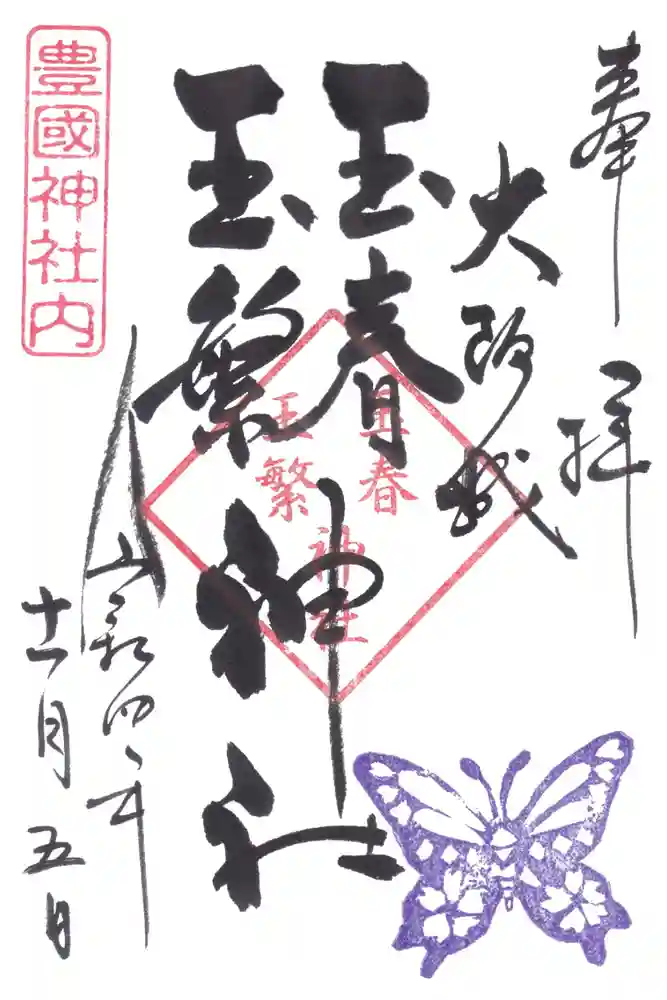 奉拝
大阪城
玉春
玉繁
神社
玉春
玉繁
神社
令和四年
十一月五日
豊國神社内